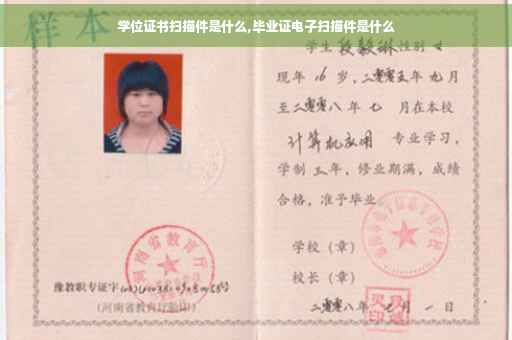 学位证书扫描件是什么,毕业证电子扫描件是什么
样本
学生段毅琳性别女
现年16岁,二零零五年九月
至二零零八年七月在本校
计算机应用 专业学习,
学制三年,修业期满,成绩
合格,准予毕业
学校(章)
校长(章)
二零零八年七月一日
河南省教育厅
豫教职专证字
(河南省教育厅验印)